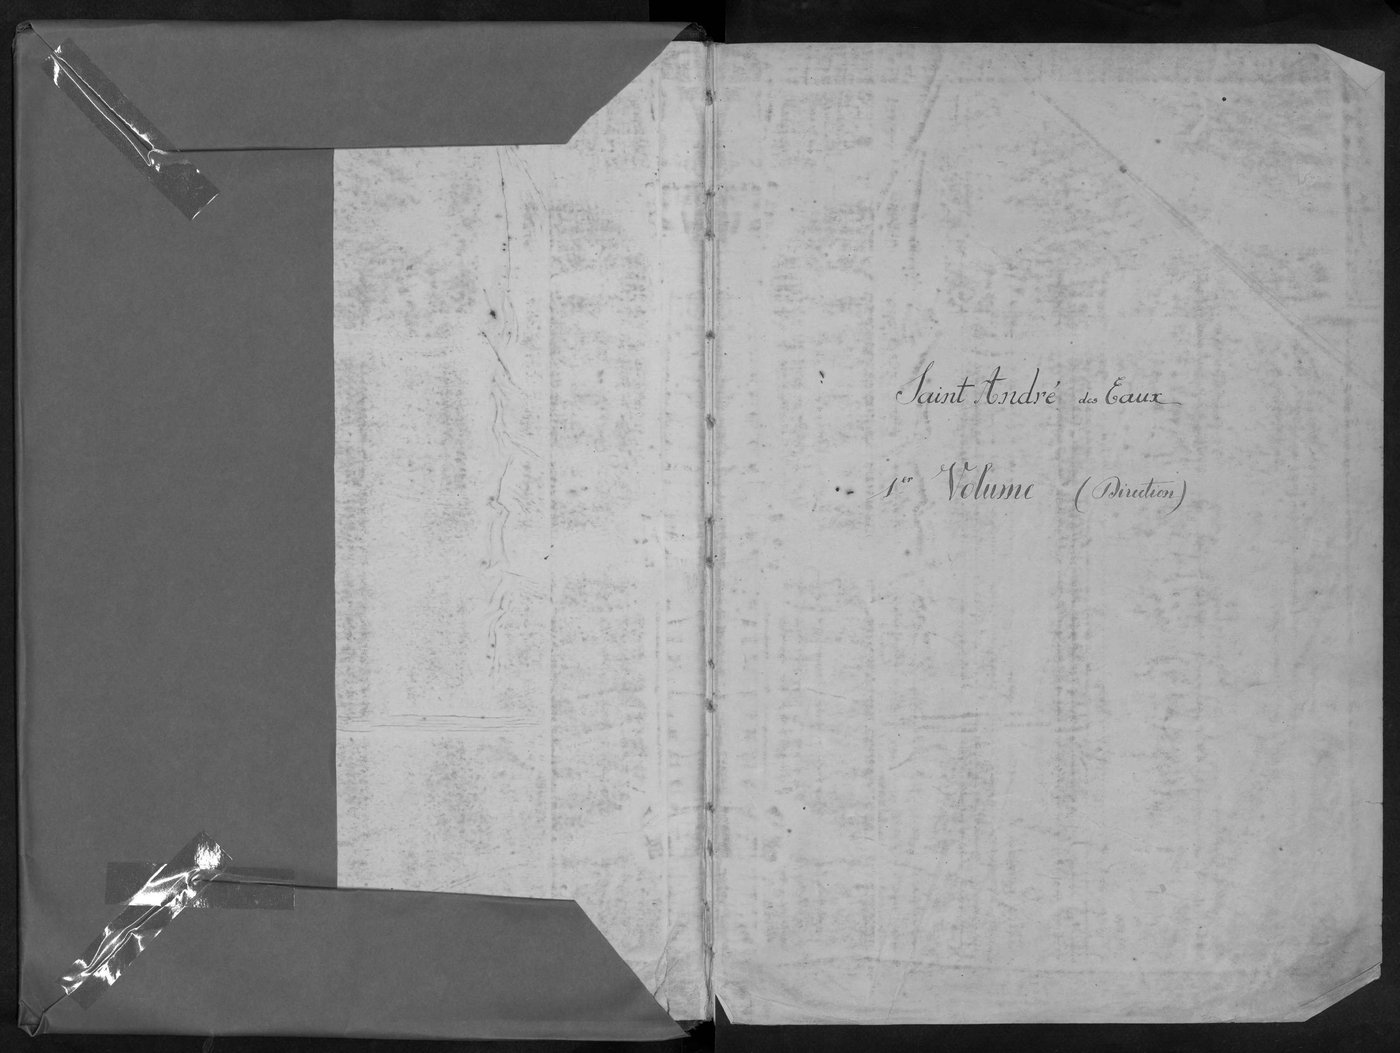 Saint André des Eaux
1er Volume (Direction)